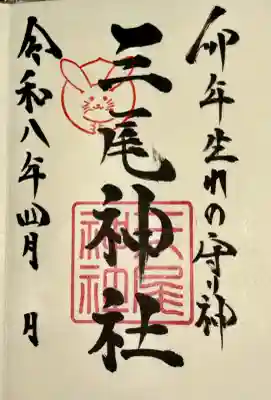 卯年生れの守り神
三尾神社
三尾神社
令和八年四月 月